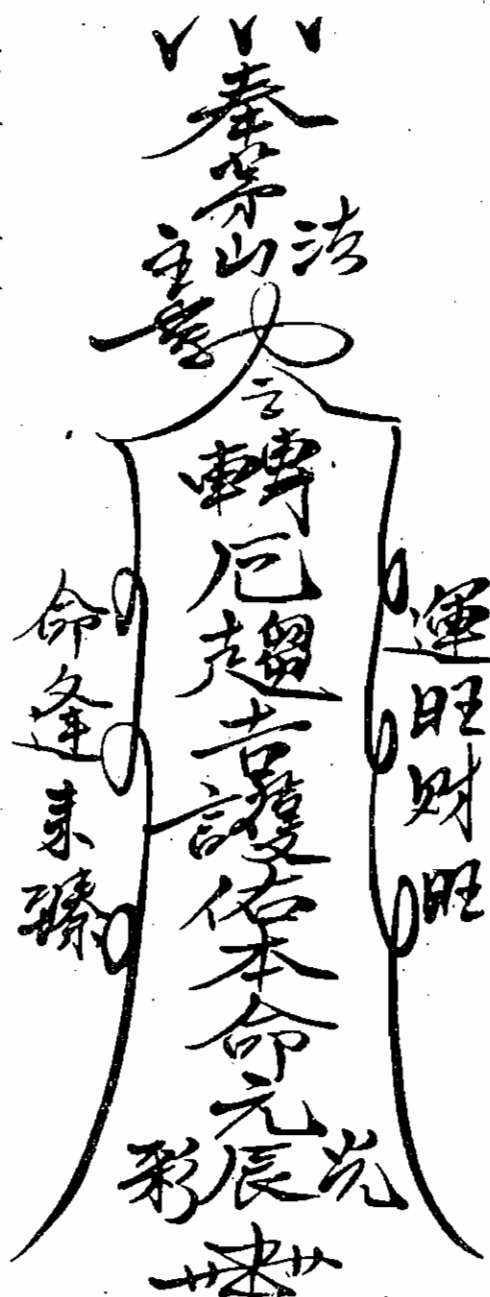 奉茅山法主
令
轉厄趨吉護佑本命元辰光彩
運旺財旺
命逢來臻